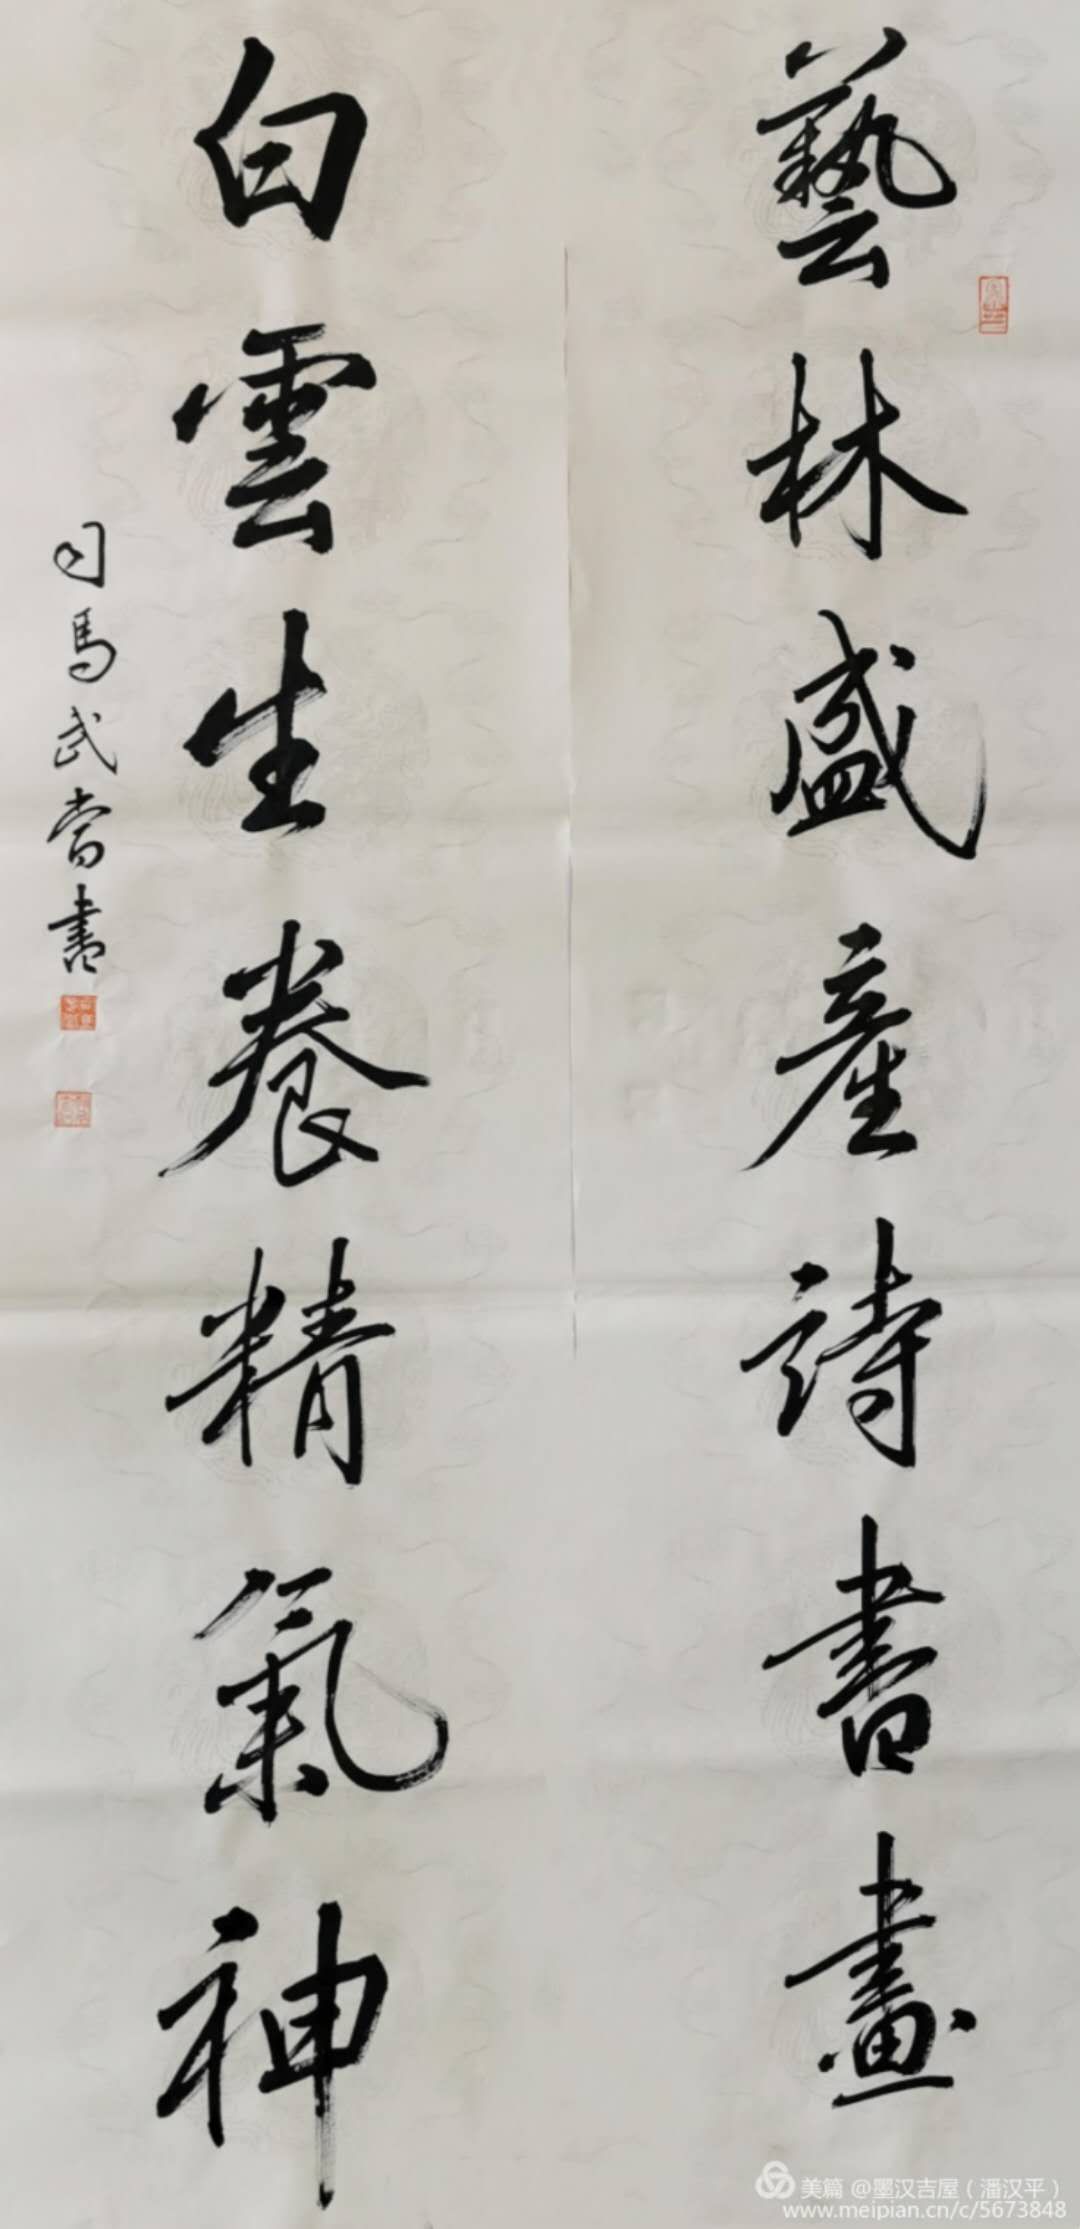 藝林盛産詩書畫
白雲生養精氣神
司馬武當書
美篇 @墨汉吉屋（潘汉平）
www.meipian.cn/c/5673848